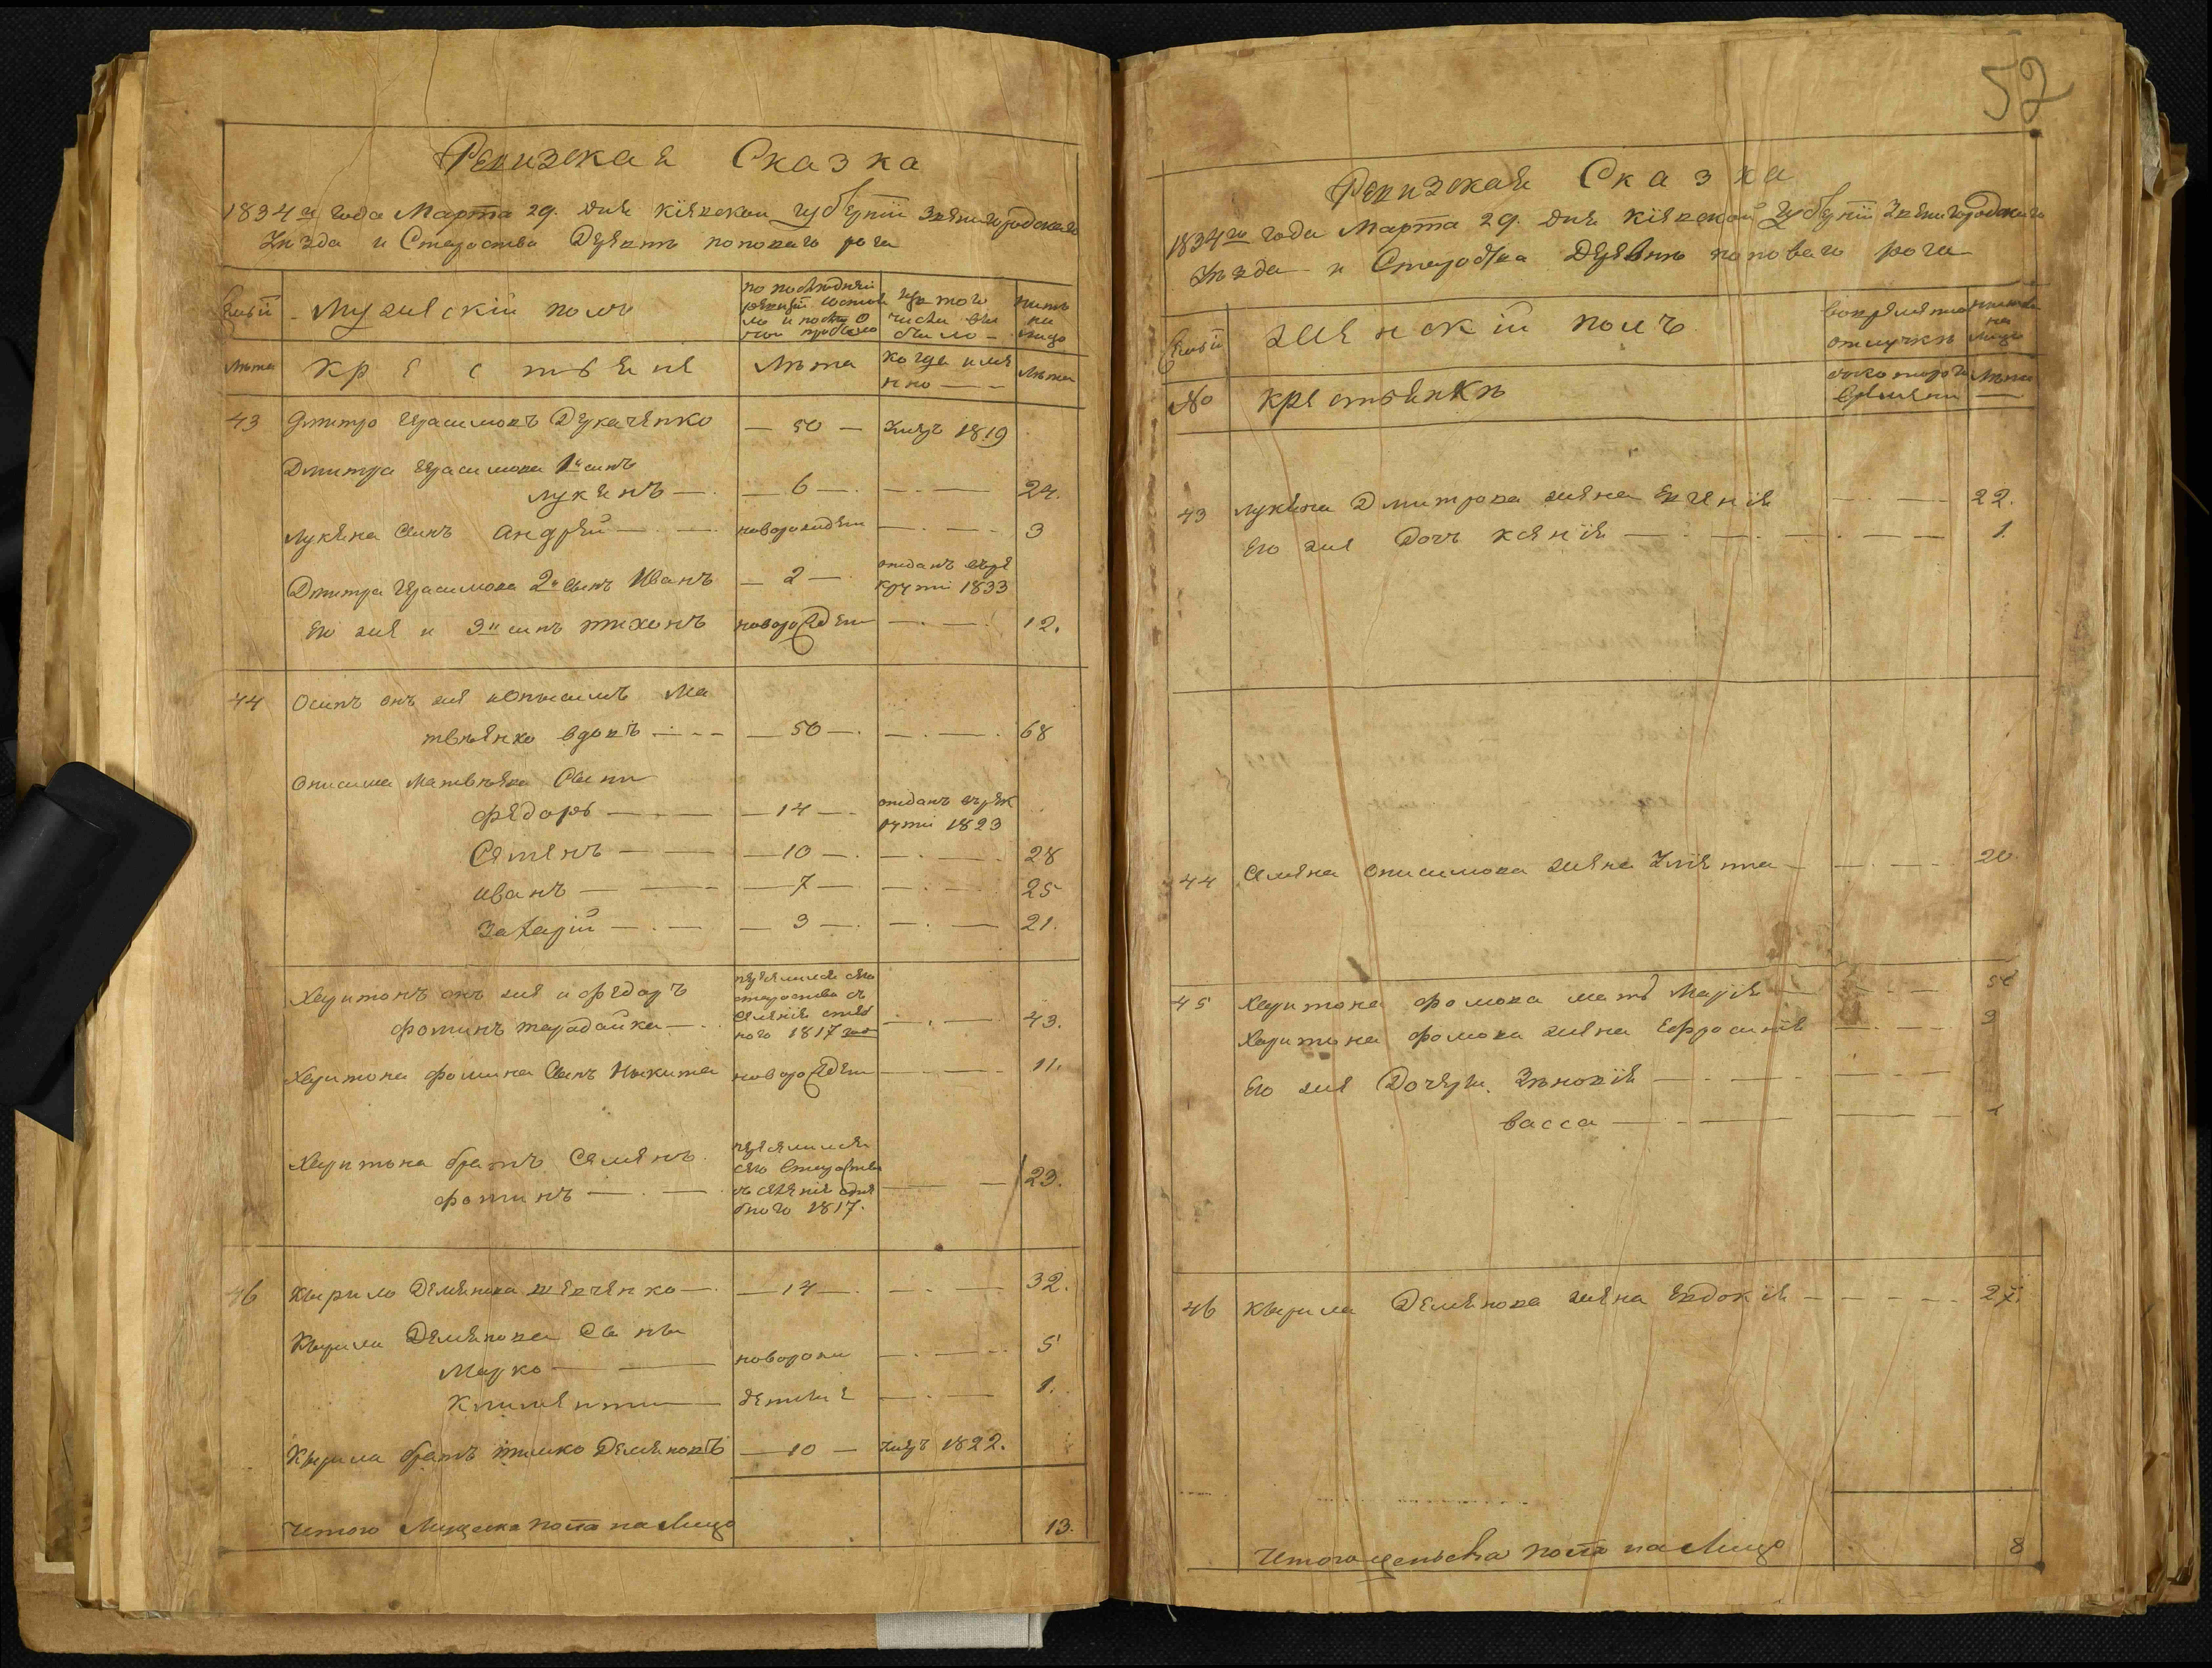 Ревизская Сказка
1834го года Марта 29. дня Кіевскои губерніи Звенигородскаго
уѣзда и Староства Деревнѣ поповаго рога
Мужескій полъ
по послѣдней
ревизіи состоя
ло и послѣ
изъ того
числа вы
было
нынѣ
на
лицо
Лѣта
крестьяне
Лѣта
когда имя
нно
Лѣта
43
Дмитро Герасимовъ Дукаченко
— 50 —
умеръ 1819
Дмитра Герасимова 1й синъ
лукянъ
— 6 —
24.
лукяна Синъ андрей
новорожден
3
Дмитра Герасимова 2й Сынъ Иванъ
— 2 —
отданъ въре
крути 1833
Его же и 3й синъ тихонъ
новорожден
12.
44
Осипъ онъ же и Онисимъ Ма
твѣенко вдовъ
— 50 —
68
Онисима Матвѣева Сыни
федоръ
— 14 —
отданъ върек
рути 1823
Семенъ
— 10 —
28
иванъ
— 7 —
25
Захарій
— 3 —
21.
Харитонъ онъ же и федоръ
фоминъ тарадайка
староства съ
ного 1817
43.
Харитона фомина Сынъ Никита
новорожден
11.
Харитона братъ Семенъ
фоминъ
сего Староства
бного 1817.
23.
46
Кырило Демянова шевченко
— 14 —
32.
Кырила Демянова Сыны
Марко
новорож
5
Климентий
денние
1.
Кырила братъ тимко Демяновъ
— 10 —
умеръ 1822.
Итого Мужеска пола налицо
13.
52
Ревизская Сказка
1834го года Марта 29. дня Кіевской губерніи Звенигородскаго
уѣзда и Староства Деревнѣ поповаго рога
женскій полъ
вовременной
отлучкѣ
нынѣ
на
лицо
№
крестьянкѣ
скотораго
времени
Лѣта
43
лукяна Дмитрова жена Евгенія
22.
Его же Дочъ ксенія
1.
44
Семена Онисимова жена
20
45
Харитона фомова мать Марія
Харитона фомова жена Ефросинія
3
Его же Дочери Зѣновія
васса
46
Кырила Демянова жена Евдокія
Итого женска пола налицо
8